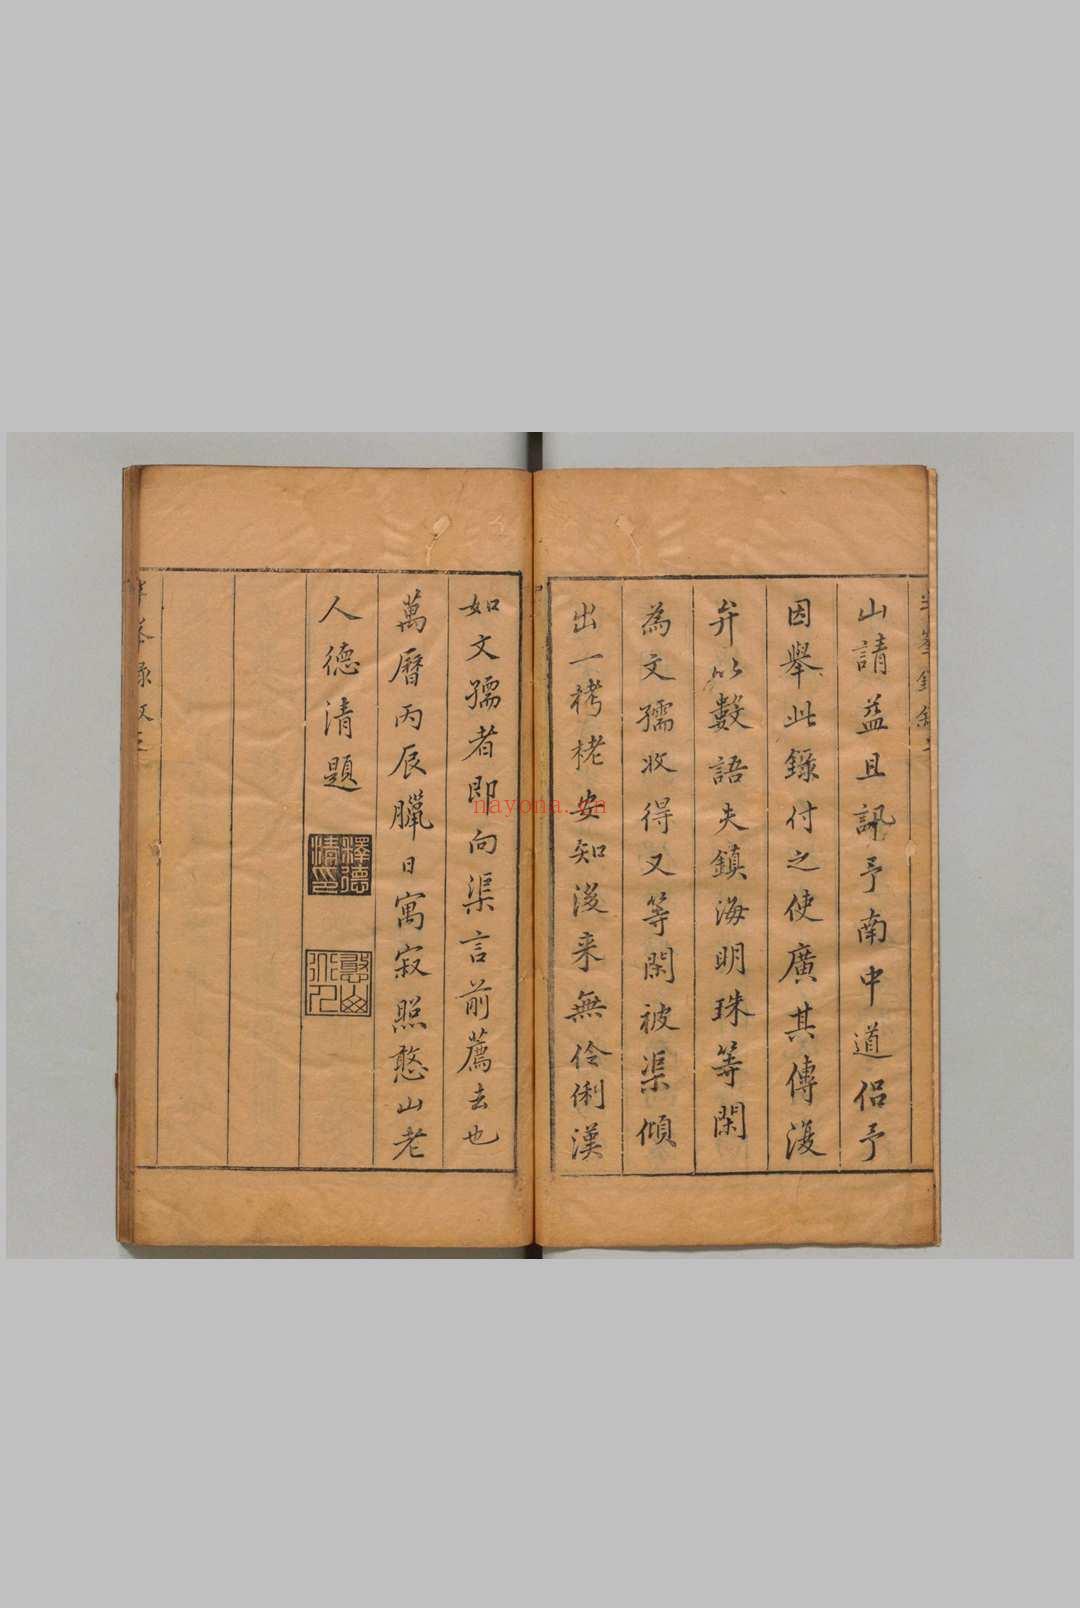 山請益且訊予南中道侶予
因舉此錄付之使廣其傳復
弁以數語夫鎮海明珠等閑
為文孺收得又等閑被渠傾
出一栲栳安知後来無伶俐漢
如文孺者即向渠言前薦去也
萬曆丙辰臘日寓寂照憨山老
人德清題
釋德清印
憨山
nayona.cn